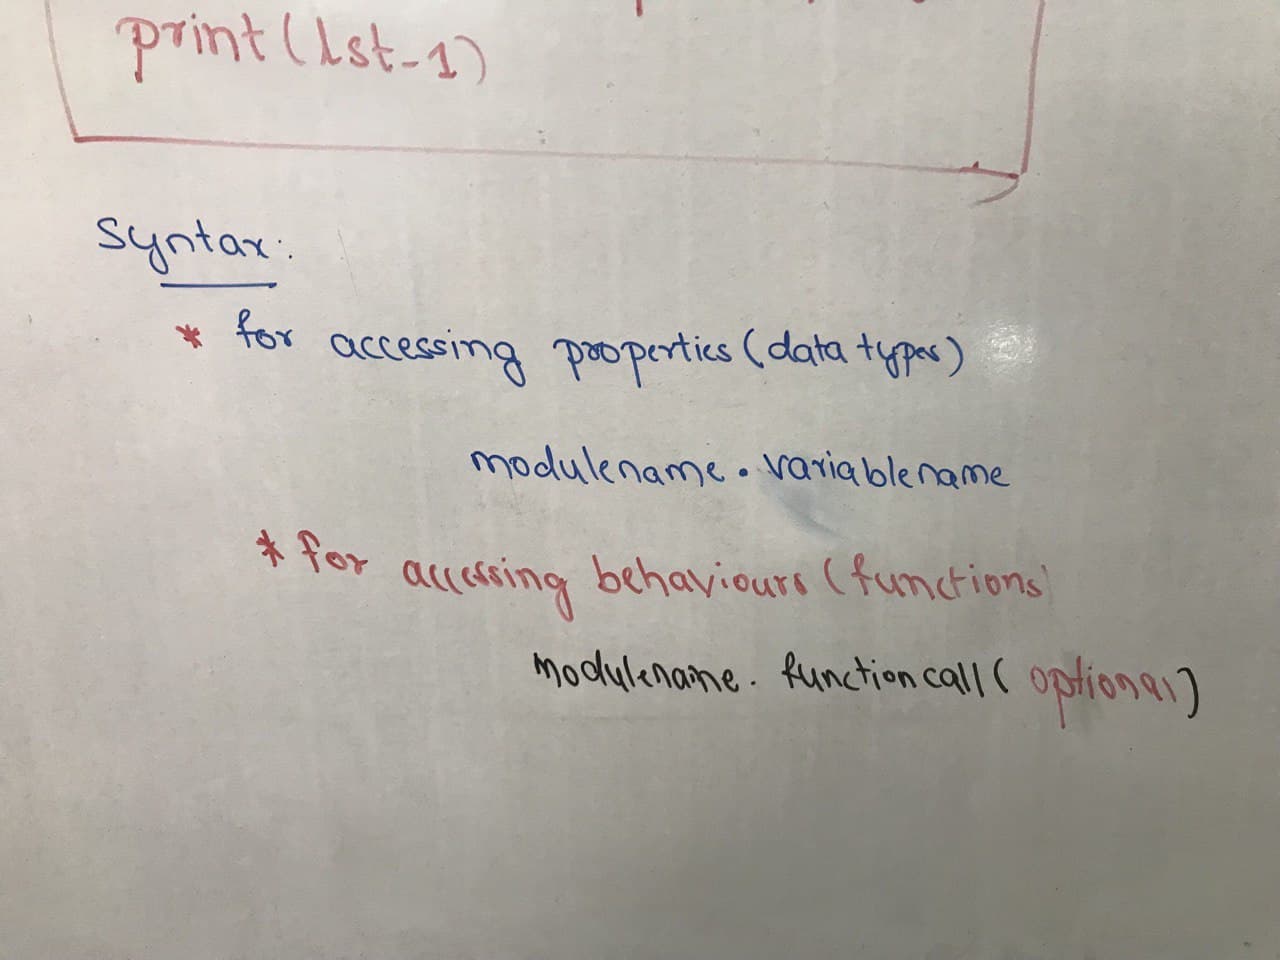 print(lst-1)
Syntax:
* for accessing properties (data types)
modulename.variablename
* for accessing behaviours (functions)
modulename.functioncall(optional)